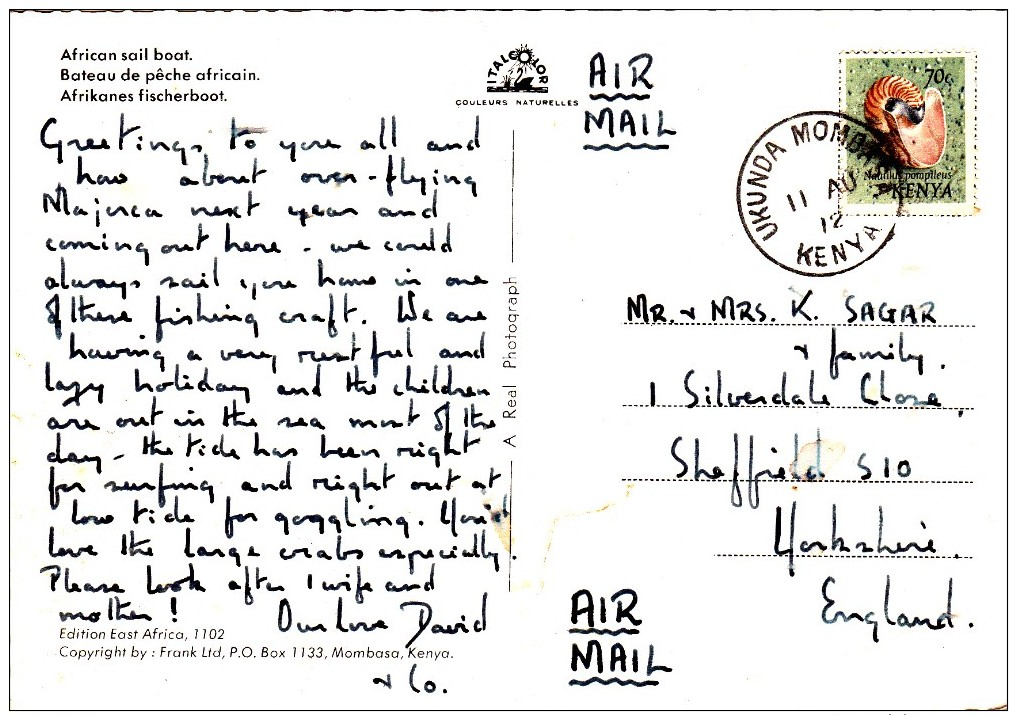 African sail boat.
Bateau de pêche africain.
Afrikanes fischerboot.
ITALCOLOR
COULEURS NATURELLES
Greetings to you all and
how about over-flying
Majorca next year and
coming out here - we could
always sail you home in one
of these fishing craft. We are
having a very restful and
lazy holiday and the children
are out in the sea most of the
day - the tide has been right
for surfing and right out at
low tide for goggling.
love the large crabs especially.
Please look after 1 wife and
mother! Our love David
& Co.
Edition East Africa, 1102
Copyright by : Frank Ltd, P.O. Box 1133, Mombasa, Kenya.
A Real Photograph
AIR
MAIL
70c
Nautilus pompileus
KENYA
UKUNDA MOMBASA
11 AU
12
KENYA
MR. & MRS. K. SAGAR
& family.
1 Silverdale Close,
Sheffield S10
Yorkshire.
England.
AIR
MAIL